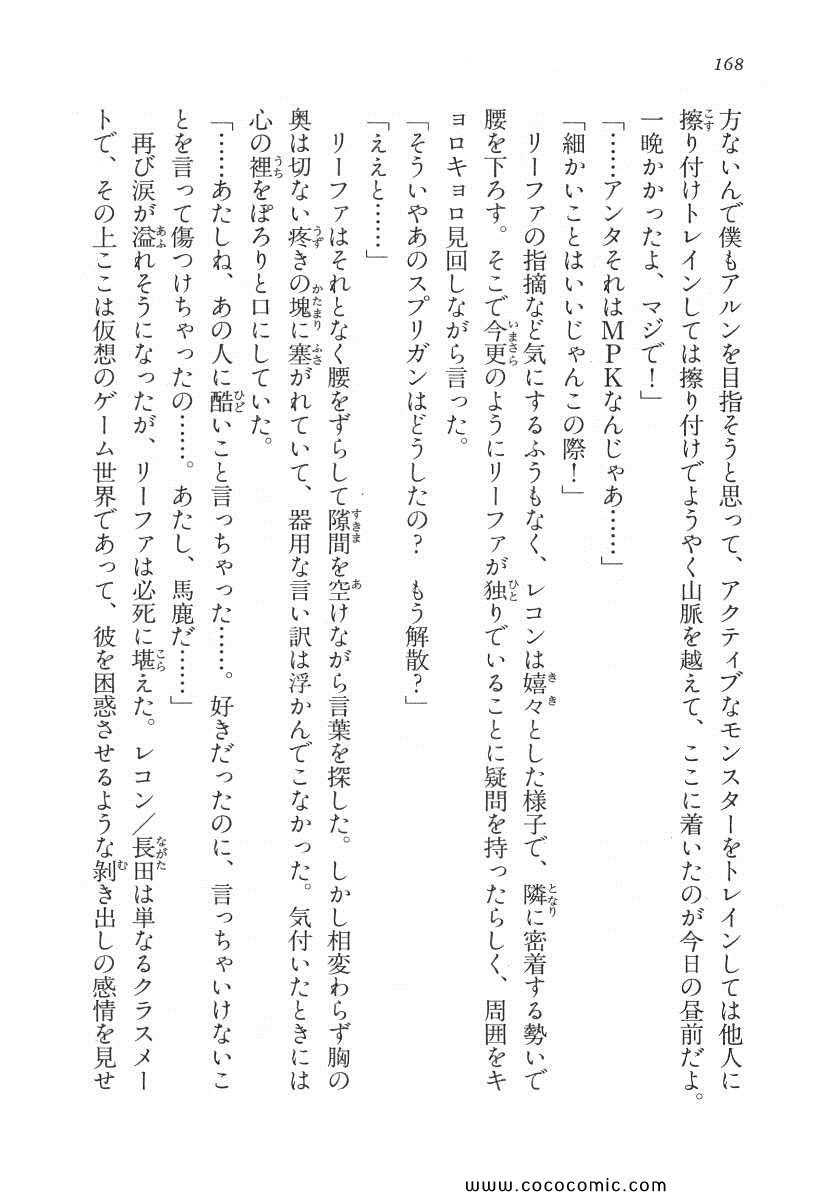 168
方ないんで僕もアルンを目指そうと思って、アクティブなモンスターをトレインしては他人に
擦り付けトレインしては擦り付けでようやく山脈を越えて、ここに着いたのが今日の昼前だよ。
一晩かかったよ、マジで！」
「……アンタそれはＭＰＫなんじゃあ……」
「細かいことはいいじゃんこの際！」
リーファの指摘など気にするふうもなく、レコンは嬉々とした様子で、隣に密着する勢いで
腰を下ろす。そこで今更のようにリーファが独りでいることに疑問を持ったらしく、周囲をキ
ョロキョロ見回しながら言った。
「そういやあのスプリガンはどうしたの？　もう解散？」
「ええと……」
リーファはそれとなく腰をずらして隙間を空けながら言葉を探した。しかし相変わらず胸の
奥は切ない疼きの塊に塞がれていて、器用な言い訳は浮かんでこなかった。気付いたときには
心の裡をぽろりと口にしていた。
「……あたしね、あの人に酷いこと言っちゃった……。好きだったのに、言っちゃいけないこ
とを言って傷つけちゃったの……。あたし、馬鹿だ……」
再び涙が溢れそうになったが、リーファは必死に堪えた。レコン／長田は単なるクラスメー
トで、その上ここは仮想のゲーム世界であって、彼を困惑させるような剝き出しの感情を見せ
www.cococomic.com